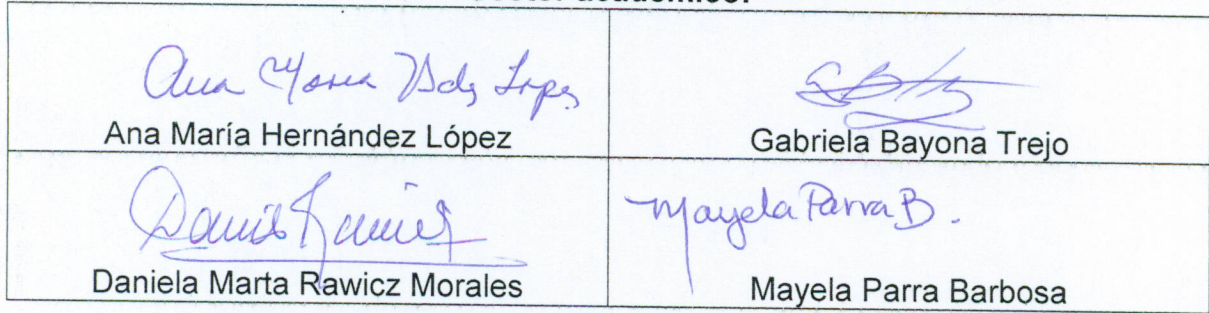 Ana María Hdz López
Ana María Hernández López
Gabriela Bayona Trejo
Daniela Marta Rawicz Morales
Mayela Parra B.
Mayela Parra Barbosa